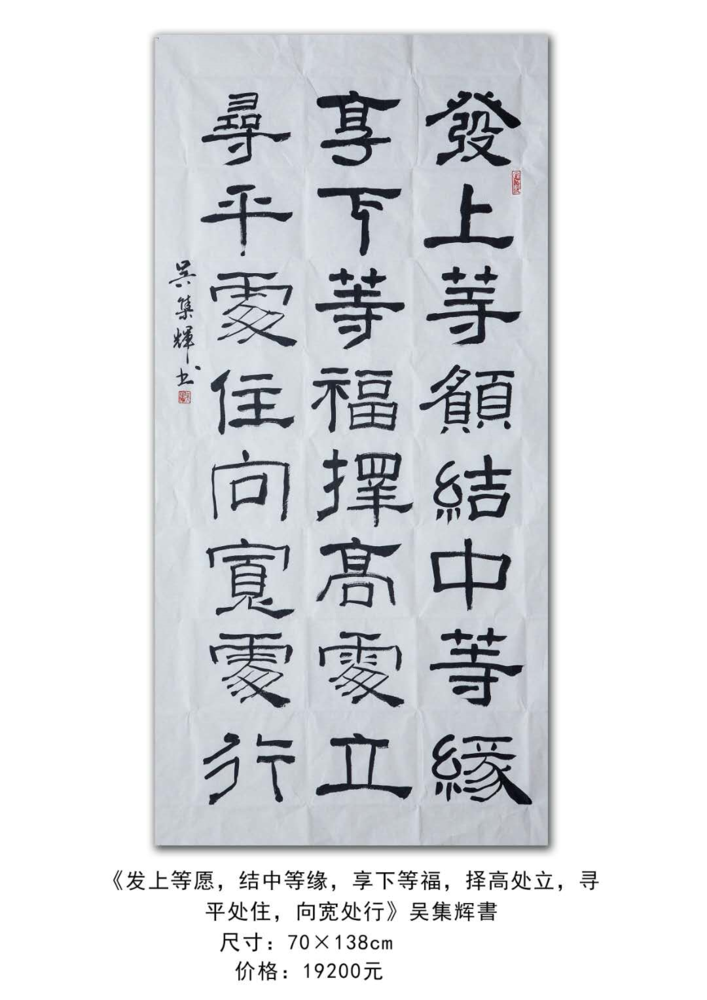 發上等願結中等緣
享下等福擇高處立
尋平處住向寬處行
吴集輝书
《发上等愿，结中等缘，享下等福，择高处立，寻
平处住，向宽处行》吴集辉書
尺寸：70×138cm
价格：19200元